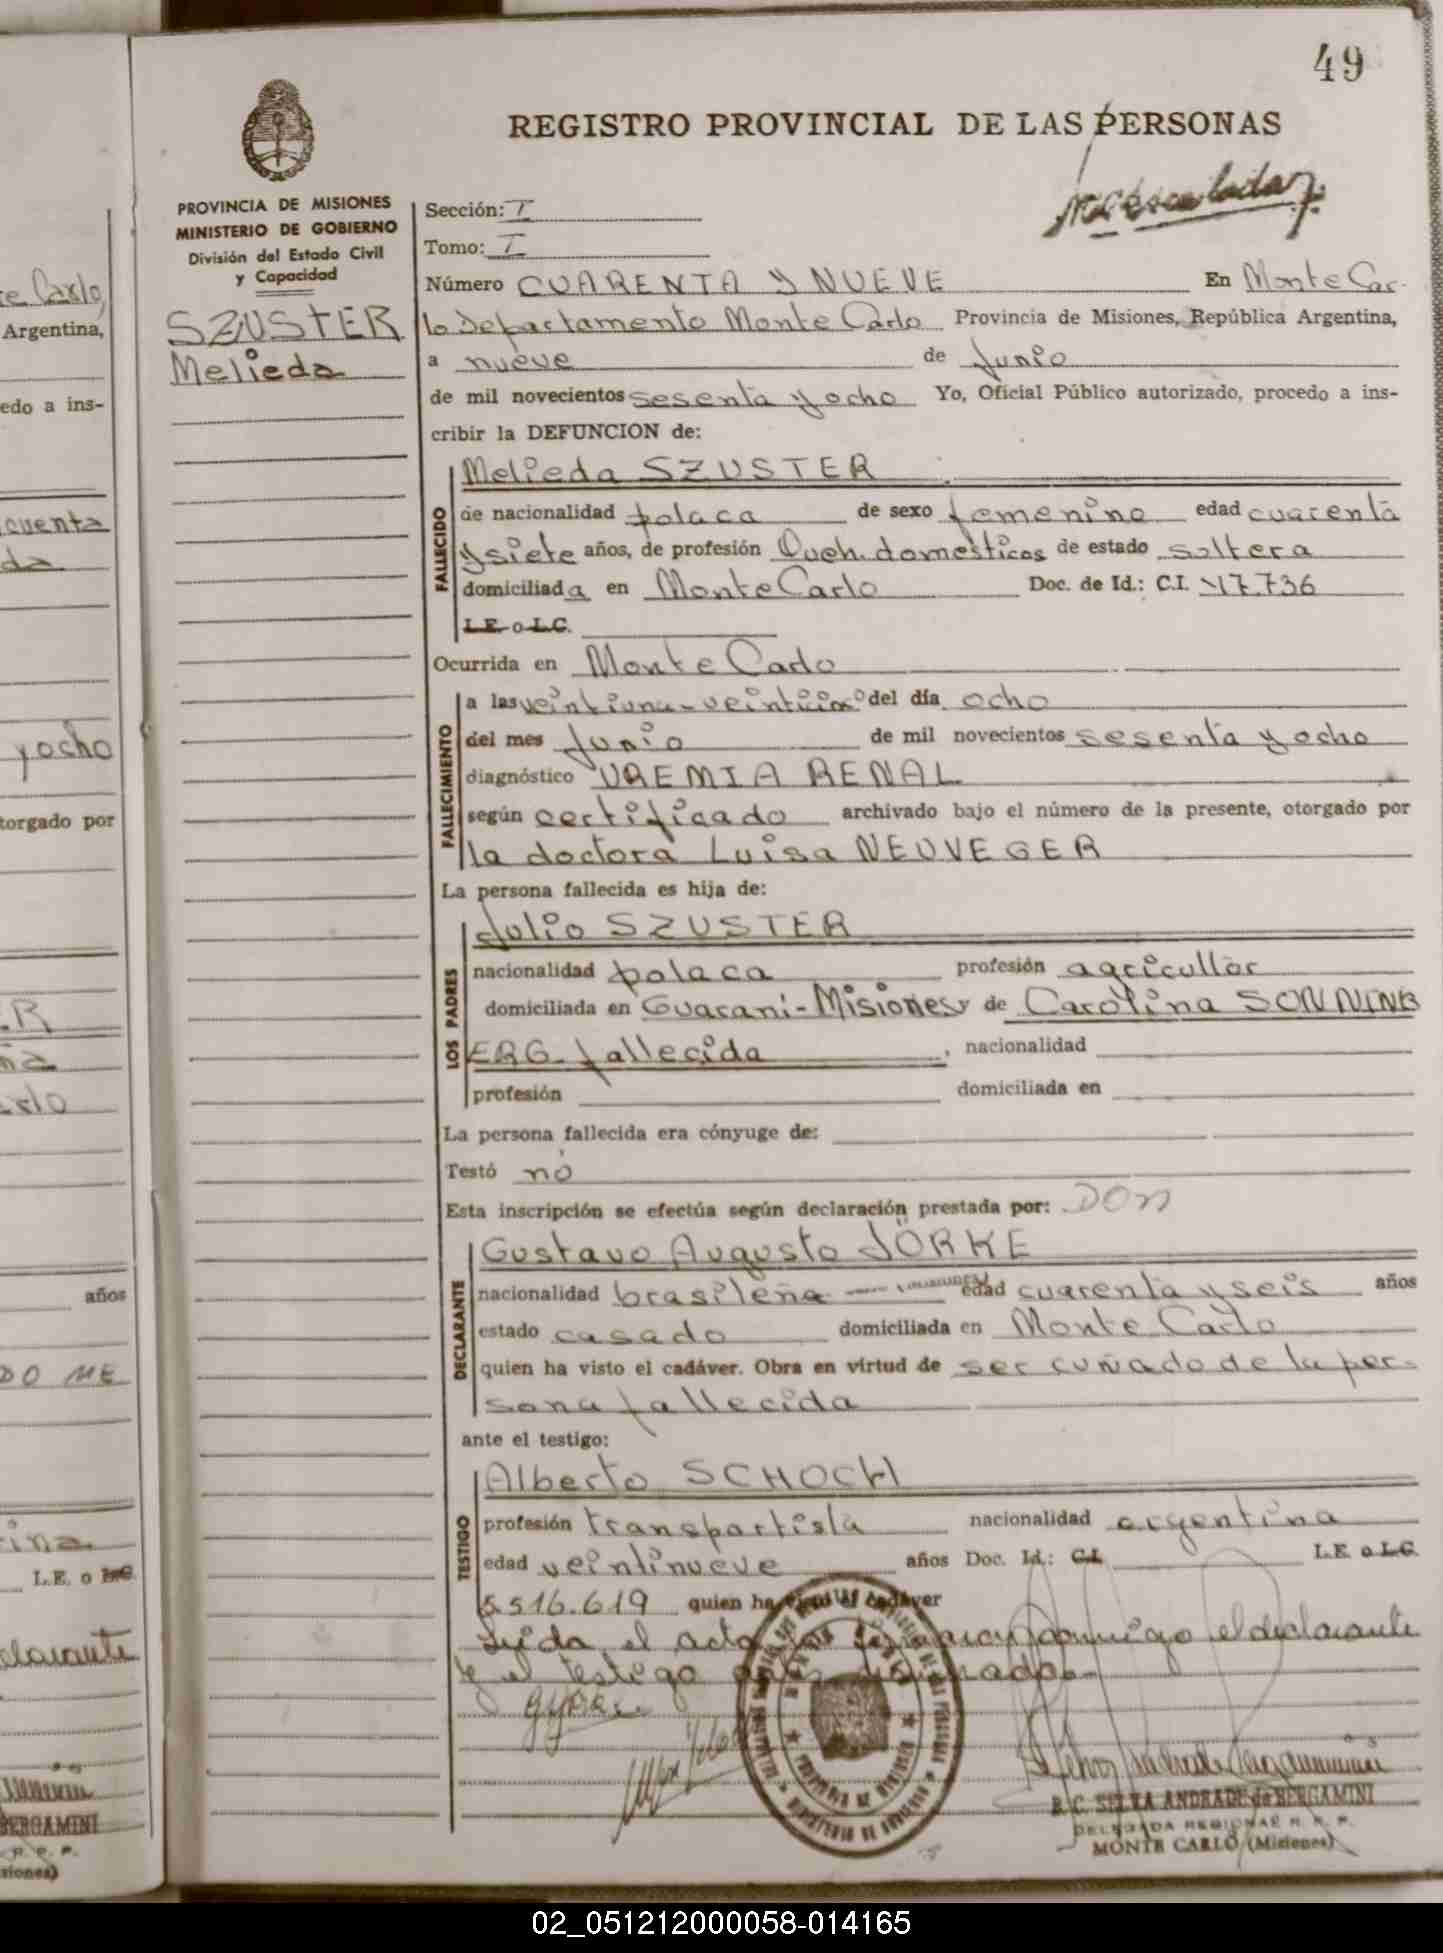 49
REGISTRO PROVINCIAL DE LAS PERSONAS
PROVINCIA DE MISIONES
MINISTERIO DE GOBIERNO
División del Estado Civil
y Capacidad
SZUSTER
Melieda
Sección: I
Tomo: I
Número CUARENTA Y NUEVE En Monte Car-
lo Departamento Monte Carlo Provincia de Misiones, República Argentina,
a nueve de Junio
de mil novecientos sesenta y ocho Yo, Oficial Público autorizado, procedo a ins-
cribir la DEFUNCION de:
FALLECIDO
Melieda SZUSTER
de nacionalidad polaca de sexo femenino edad cuarenta
y siete años, de profesión Queh. domesticos de estado soltera
domiciliada en Monte Carlo Doc. de Id.: C.I. 17.736
L.E. o L.C.
Ocurrida en Monte Carlo
FALLECIMIENTO
a las del día ocho
del mes Junio de mil novecientos sesenta y ocho
diagnóstico UREMIA RENAL
según certificado archivado bajo el número de la presente, otorgado por
la doctora Luisa NEUVEGER
La persona fallecida es hija de:
LOS PADRES
Julio SZUSTER
nacionalidad polaca profesión agricultor
domiciliada en Guarani-Misiones y de Carolina SONNENB
ERG- fallecida, nacionalidad
profesión domiciliada en
La persona fallecida era cónyuge de:
Testó no
Esta inscripción se efectúa según declaración prestada por: DON
DECLARANTE
Gustavo Augusto JÖRKE
nacionalidad brasileña edad cuarenta y seis años
estado casado domiciliada en Monte Carlo
quien ha visto el cadáver. Obra en virtud de ser cuñado de la per-
sona fallecida
ante el testigo:
TESTIGO
Alberto SCHOCH
profesión transportista nacionalidad argentina
edad veintinueve años Doc. Id.: C.I. L.E. o L.C.
5.516.619 quien ha visto el cadáver
Leida el acta la firman conmigo el declarante
y el testigo
B. C. SELVA ANDRADE de BERGAMINI
DELEGADA REGIONAL R. P. P.
MONTE CARLO (Misiones)
te Carlo,
Argentina,
edo a ins-
cuenta
da
y ocho
torgado por
ER
ña
arlo
años
DO ME
ina
L.E. o L.C.
clarante
BERGAMINI
siones)
02_051212000058-014165